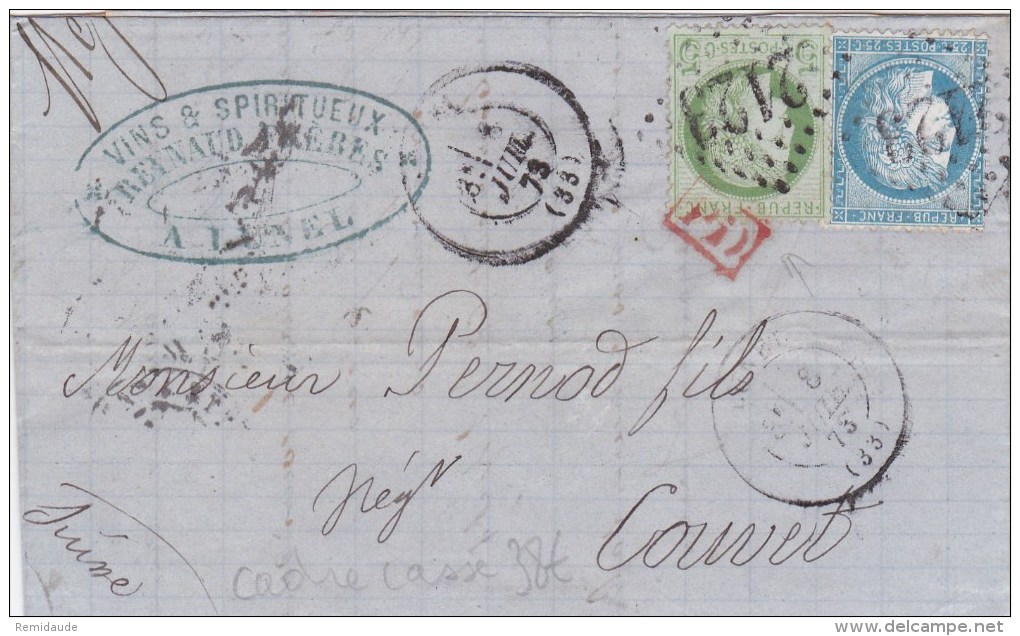 VINS & SPIRITUEUX
REYNAUD FRÈRES
A LUNEL
JUIL.
73
(33)
5 POSTES 5C
REPUB. FRANC
25C POSTES 25C
REPUB. FRANC
2123
2123
PD
73
(33)
Monsieur Pernod fils
Négt
Couvet
Suisse
cadre cassé 38t
Remidaude
delcampe.net